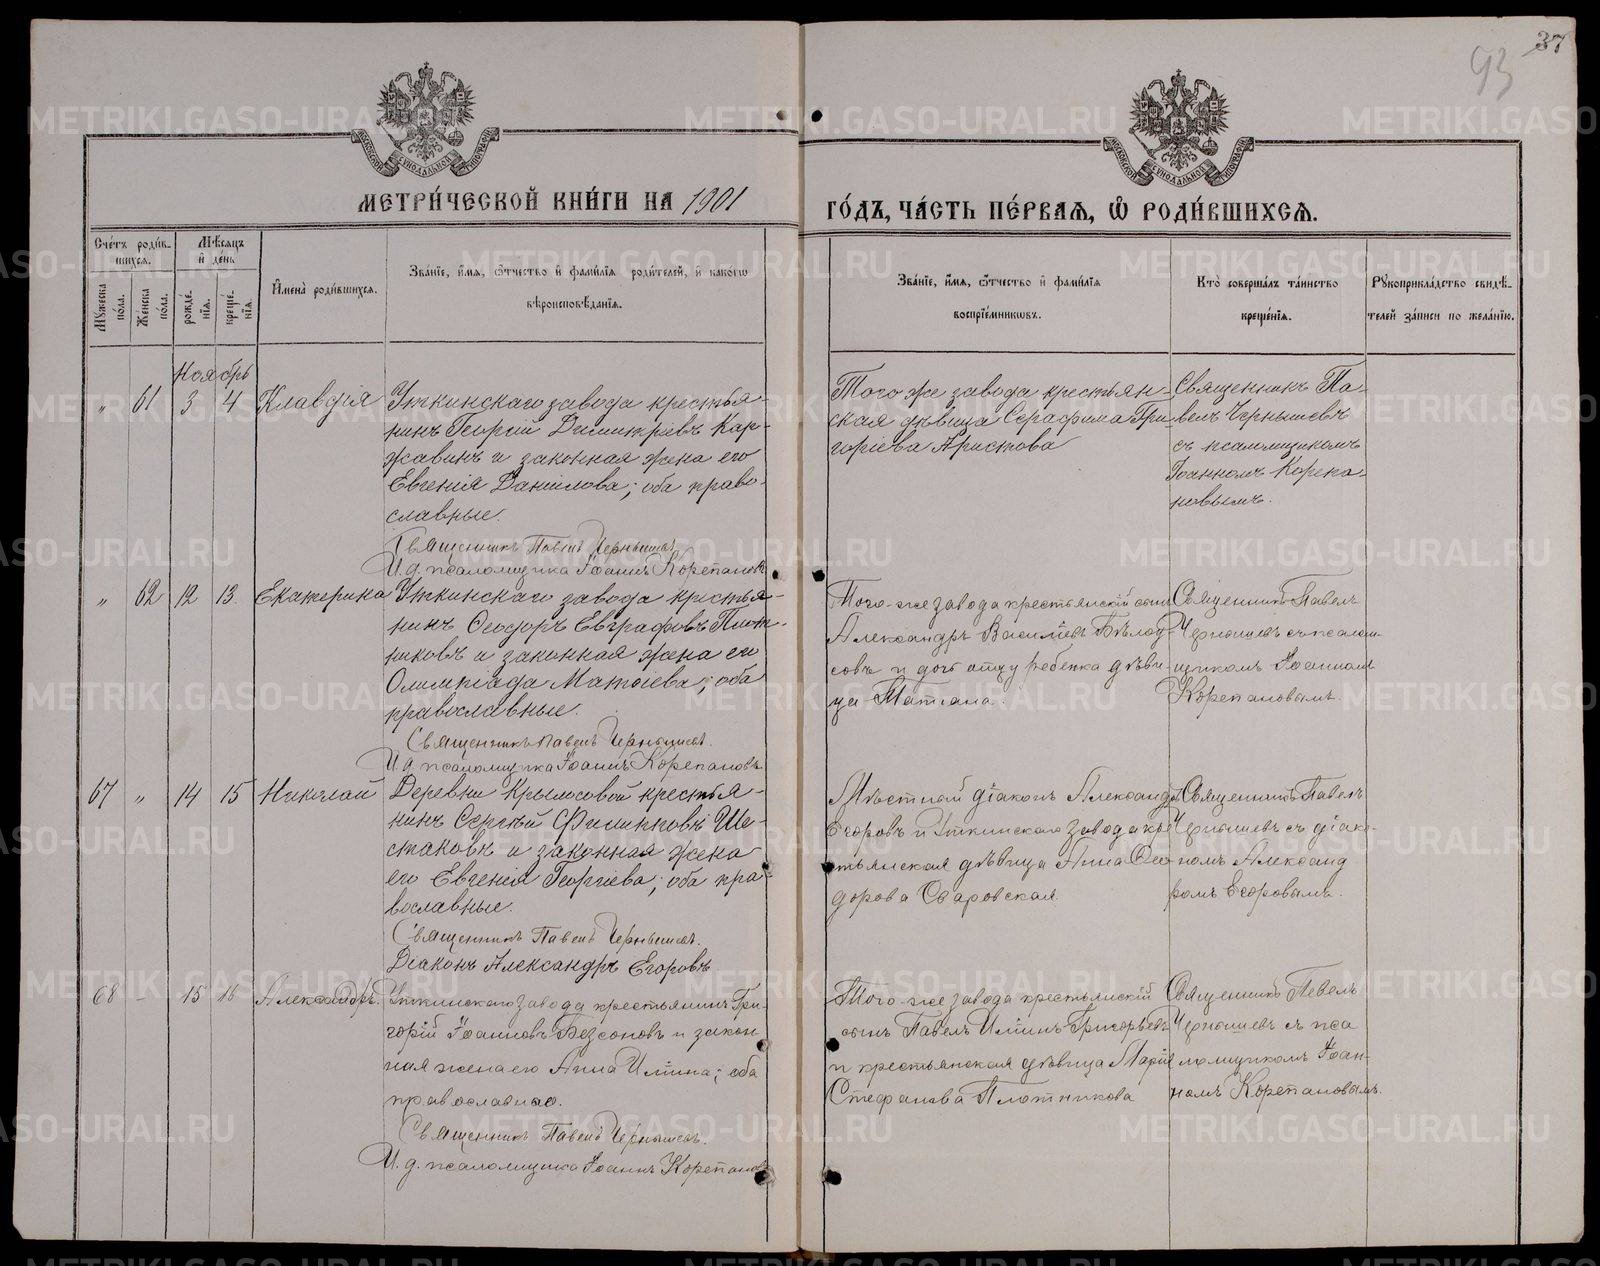 93 37
МЕТРИ́ЧЕСКОЙ КНИ́ГИ НА 1901
ГО́ДЪ, ЧА́СТЬ ПЕ́РВАЯ, Ѡ РОДИ́ВШИХСЯ.
Сче́тъ роди́в-
шихся.
Мѣ́сяцъ
и́ де́нь
Мꙋ́жеска
по́ла.
Же́нска
по́ла.
рожде́-
нїя.
креще́-
нїя.
И́мена̀ роди́вшихся.
Зва́нїе, и́мя, ѻ́тчество и́ фами́лїя роди́телей, и́ какѡ́гѡ
вѣроисповѣ́данїя.
Зва́нїе, и́мя, ѻ́тчество и́ фами́лїя
воспрїе́мникѡвъ.
Кто̀ соверша́лъ та́инство
креще́нїя.
Рꙋкоприкла́дство свидѣ́-
телей за́писи по жела́нїю.
Ноябрь
„ 61 3 4 Клавдія
Уткинскаго завода крестья-
нинъ Георгій Димитріевъ Кар-
жавинъ и законная жена его
Евгенія Данилова; оба право-
славные.
Священникъ Павелъ Чернышевъ
И. д. псаломщика Іоаннъ Корепановъ
Того же завода крестьян-
ская дѣвица Серафима Гри-
горіева Аристова
Священникъ Па-
велъ Чернышевъ
съ псаломщикомъ
Іоанномъ Корепа-
новымъ.
„ 62 12 13. Екатерина
Уткинскаго завода крестья-
нинъ Ѳеодоръ Евграфовъ Плот-
никовъ и законная жена его
Олимпіада Матѳіева; оба
православные.
Священникъ Павелъ Чернышевъ.
И. д. псаломщика Іоаннъ Корепановъ.
Того-же завода крестьянскій сынъ
Александръ Василіевъ Бѣлоу-
совъ и дочь отцу ребенка дѣви-
ца Татіана.
Священникъ Павелъ
Чернышевъ съ псалом-
щикомъ Іоанномъ
Корепановымъ.
67 „ 14 15 Николай
Деревни Крылосовой крестья-
нинъ Сергѣй Филипповъ Ше-
стаковъ и законная жена
его Евгенія Георгіева; оба пра-
вославные.
Священникъ Павелъ Чернышевъ.
Діаконъ Александръ Егоровъ
Мѣстный діаконъ Александръ
Егоровъ и Уткинскаго завода крес-
тьянская дѣвица Анна Ѳео-
дорова Сваровская.
Священникъ Павелъ
Чернышевъ съ діако-
номъ Александ
ромъ Егоровымъ.
68 - 15 16 Александръ.
Уткинскаго завода крестьянинъ Гри-
горій Іоанновъ Безсоновъ и закон-
ная жена его Анна Ильина; оба
православные.
Священникъ Павелъ Чернышевъ.
И. д. псаломщика Іоаннъ Корепановъ
Того-же завода крестьянскій
сынъ Павелъ Ильинъ Григорьевъ
и крестьянская дѣвица Марія
Стефанова Плотникова
Священникъ Павелъ
Чернышевъ съ пса
ломщикомъ Іоан-
номъ Корепановымъ.